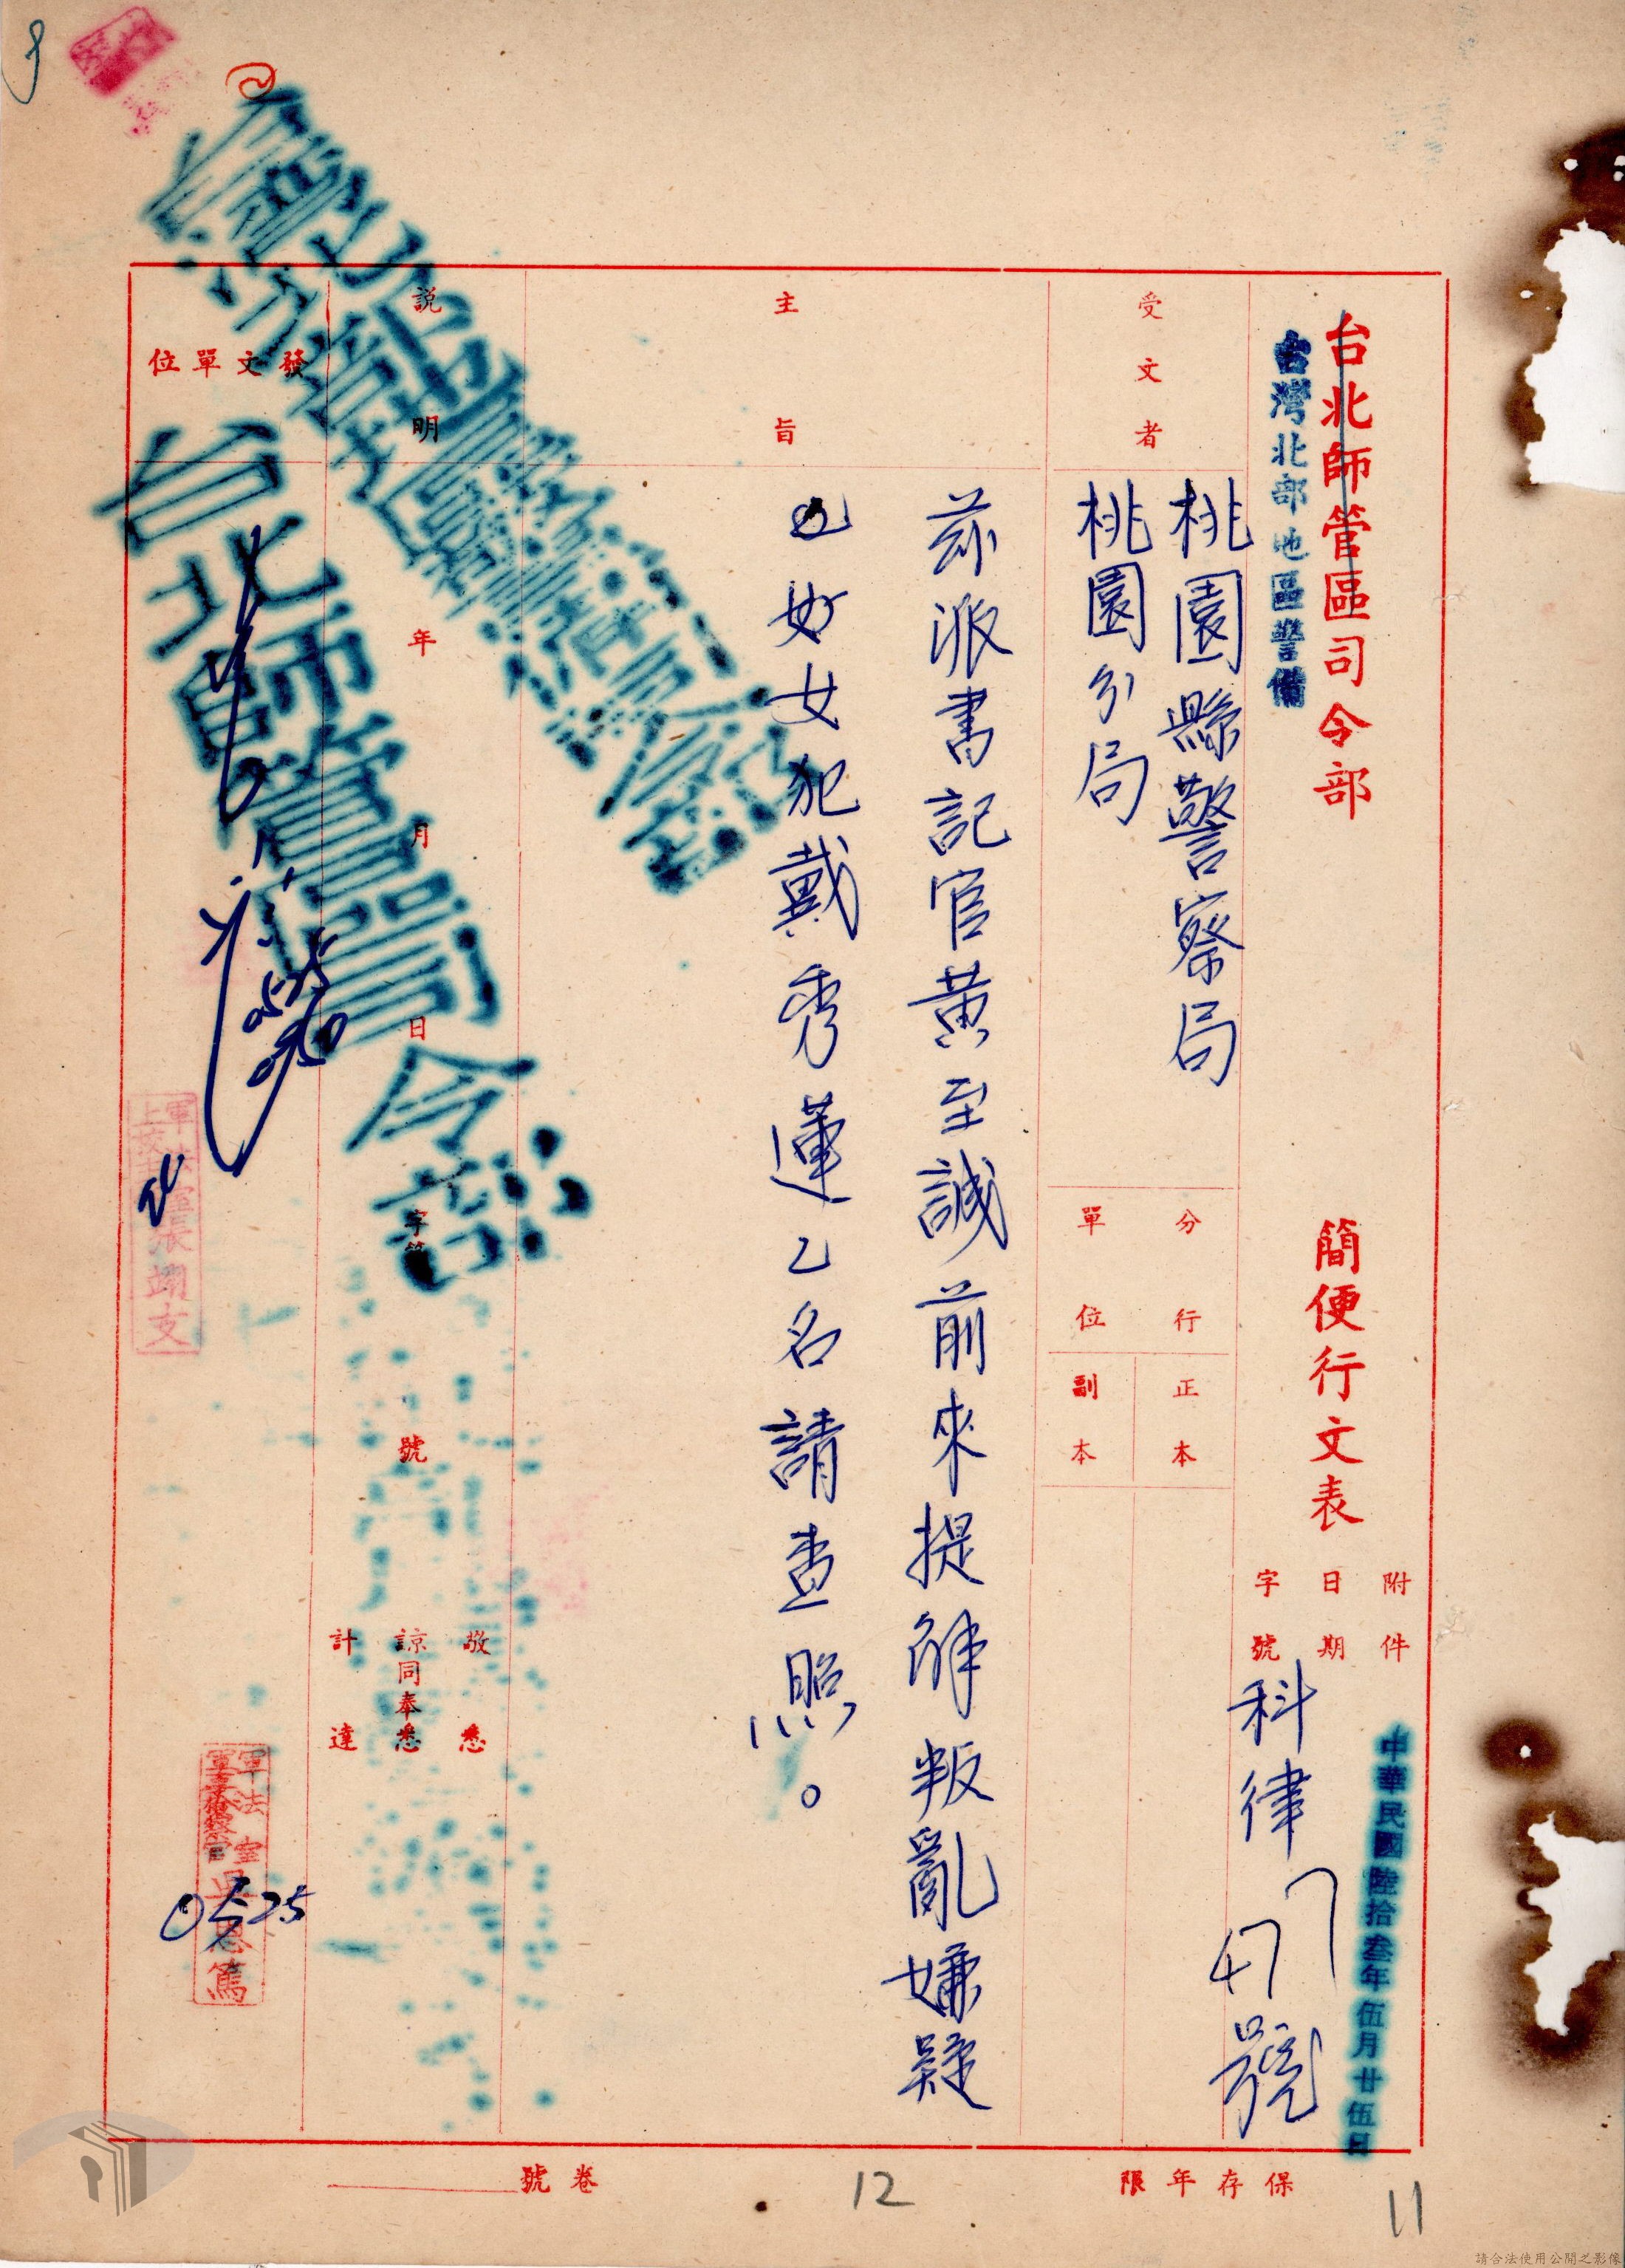 台北師管區司令部
台灣北部地區警備
簡便行文表
附件
日期
中華民國陸拾叁年伍月廿伍日
字號
科律
號
受文者
桃園縣警察局
桃園分局
分行單位
正本
副本
主旨
茲派書記官黃至誠前來提解叛亂嫌疑
女犯戴秀蓮乙名請查照。
說明
年月日字第號
敬悉
諒同奉悉
計達
發文單位
台北師管
司令
軍法室
張翊支
軍法室
軍事檢察官
吳恩篤
0525
保存年限
卷號
12
11
請合法使用公開之影像